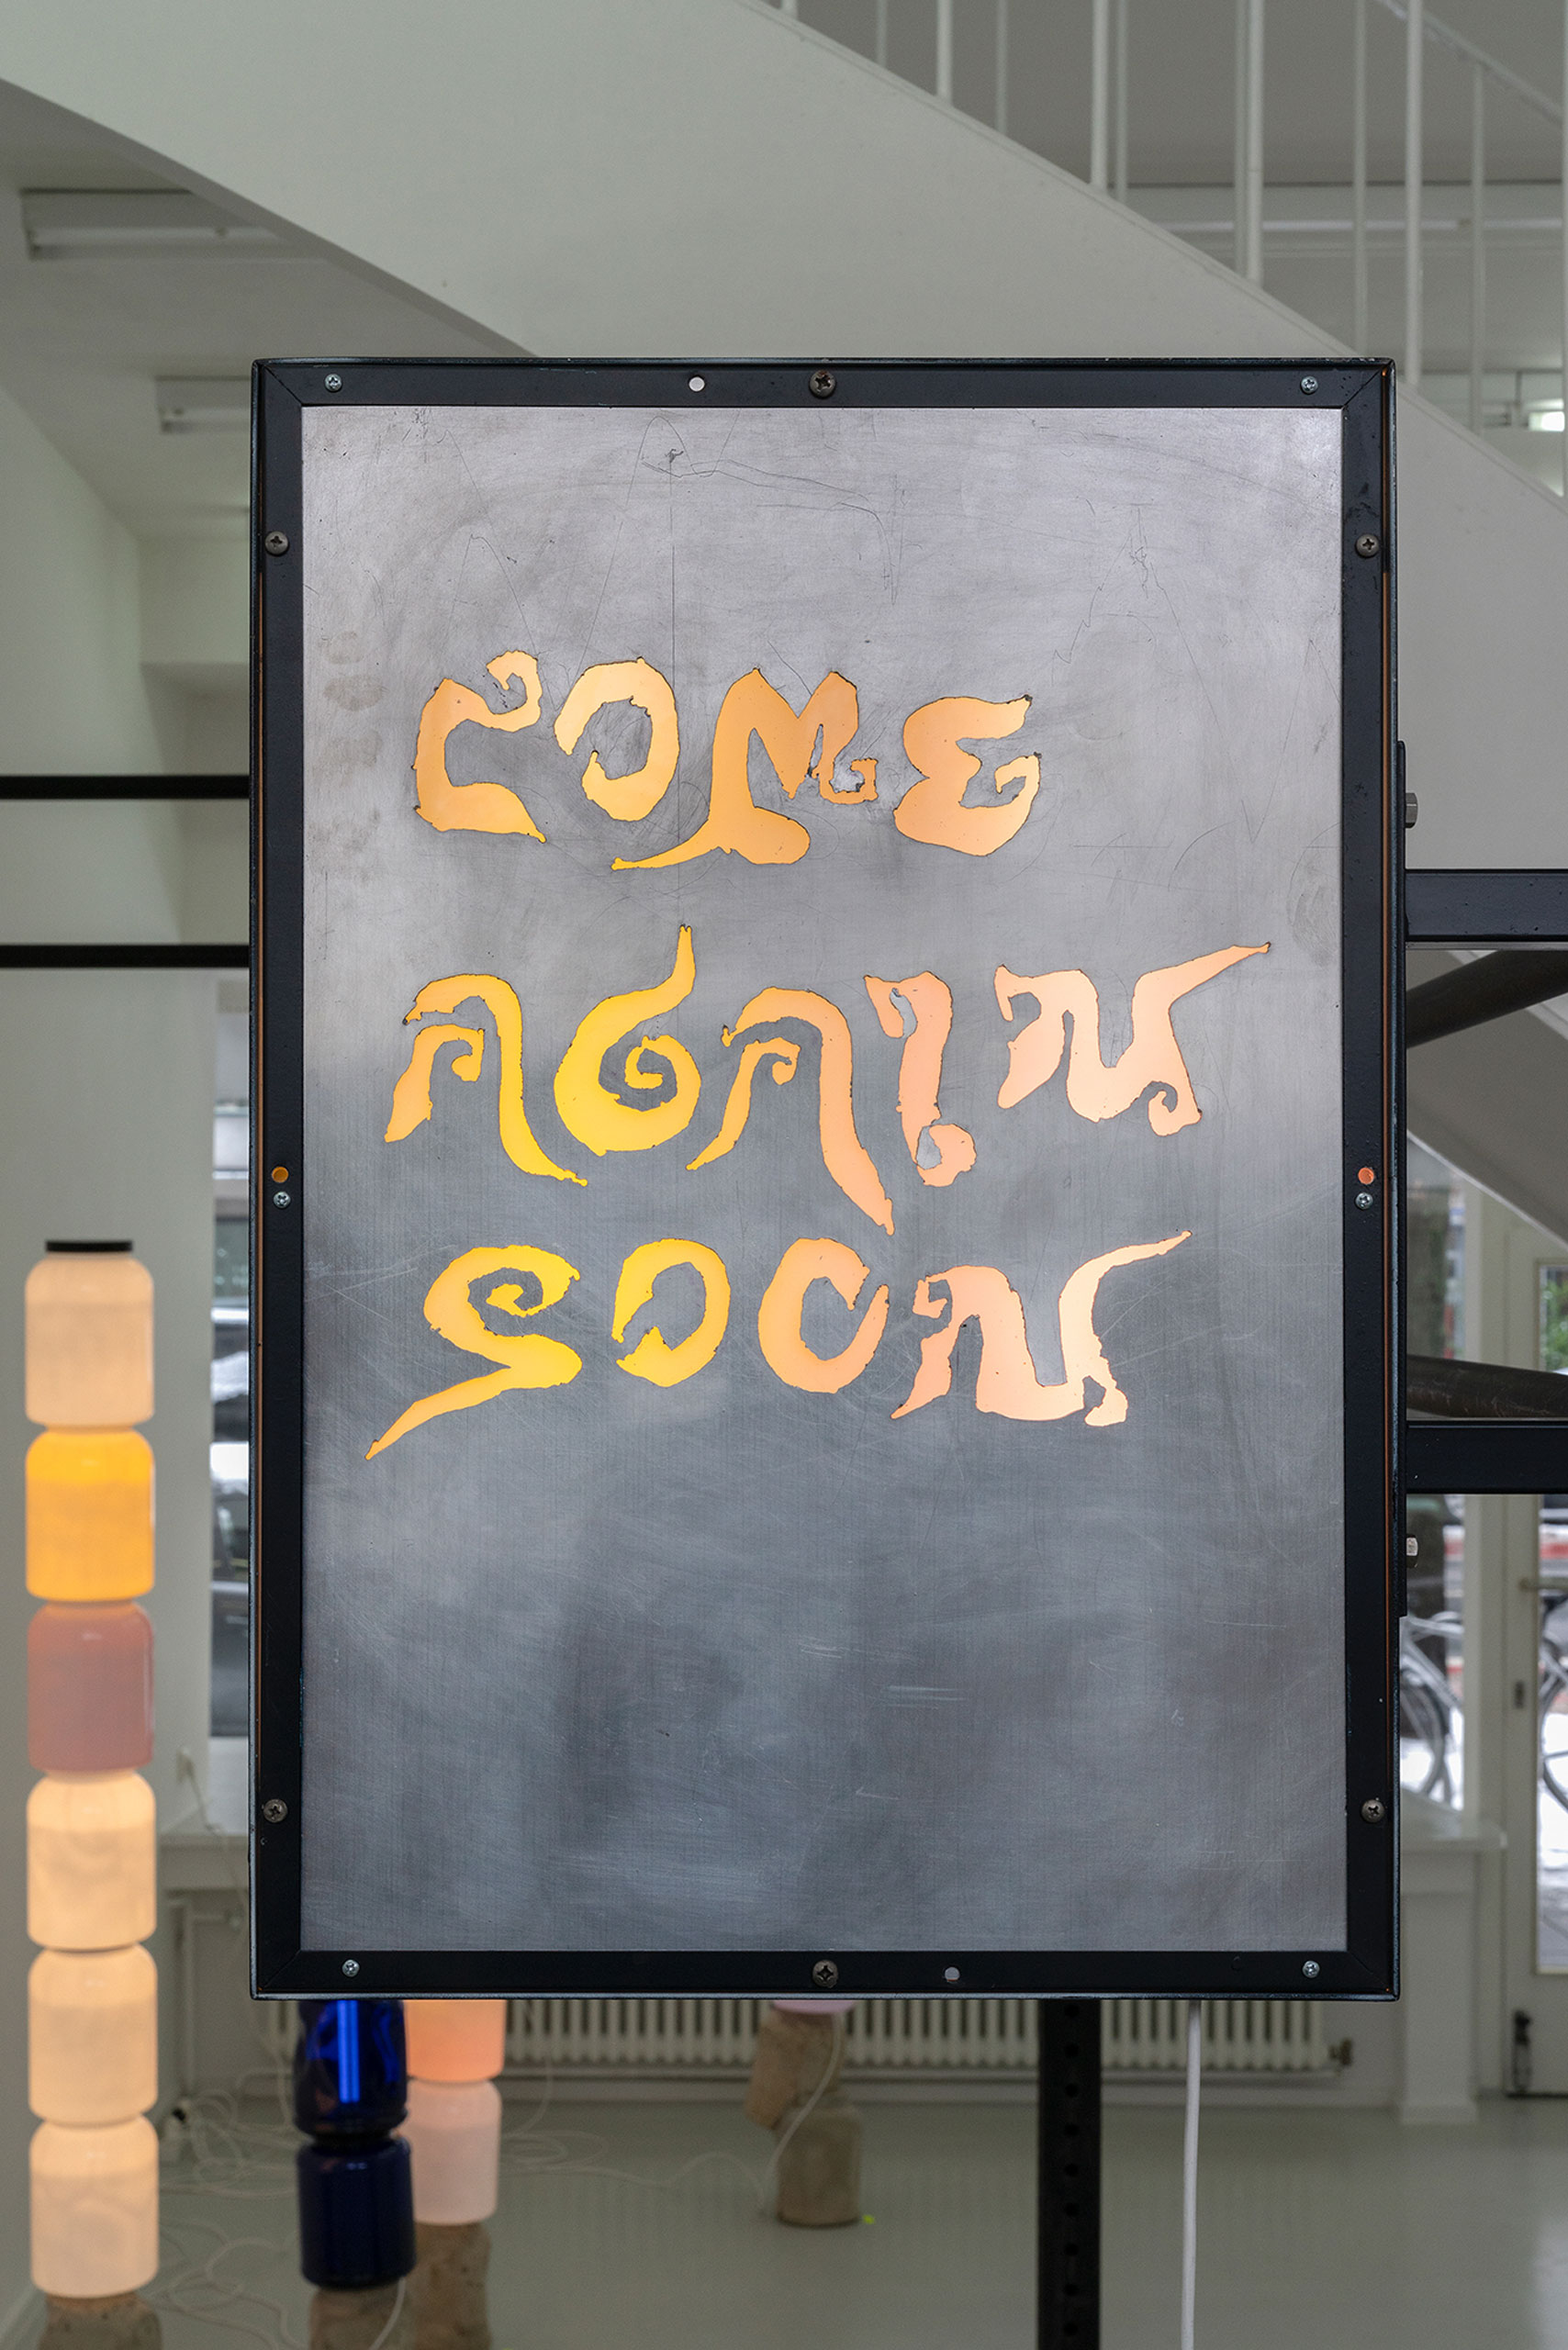 COME
AGAIN
SOON